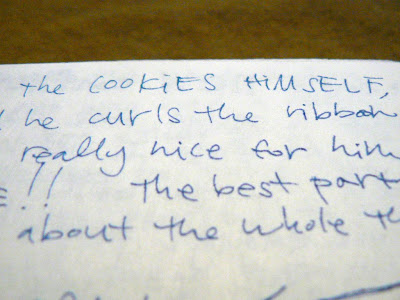 the COOKIES HIMSELF,
he curls the ribbon
really nice for him
!! the best part
about the whole th